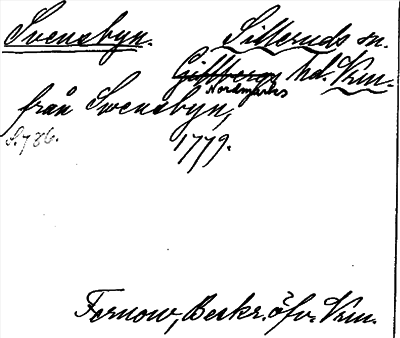 Svensbyn. Silleruds sn.
Gillbergs hd. Vrm.
Nordmarks
från Swensbyn,
S. 786. 1779.
Fernow, Beskr. öfv. Vrm.